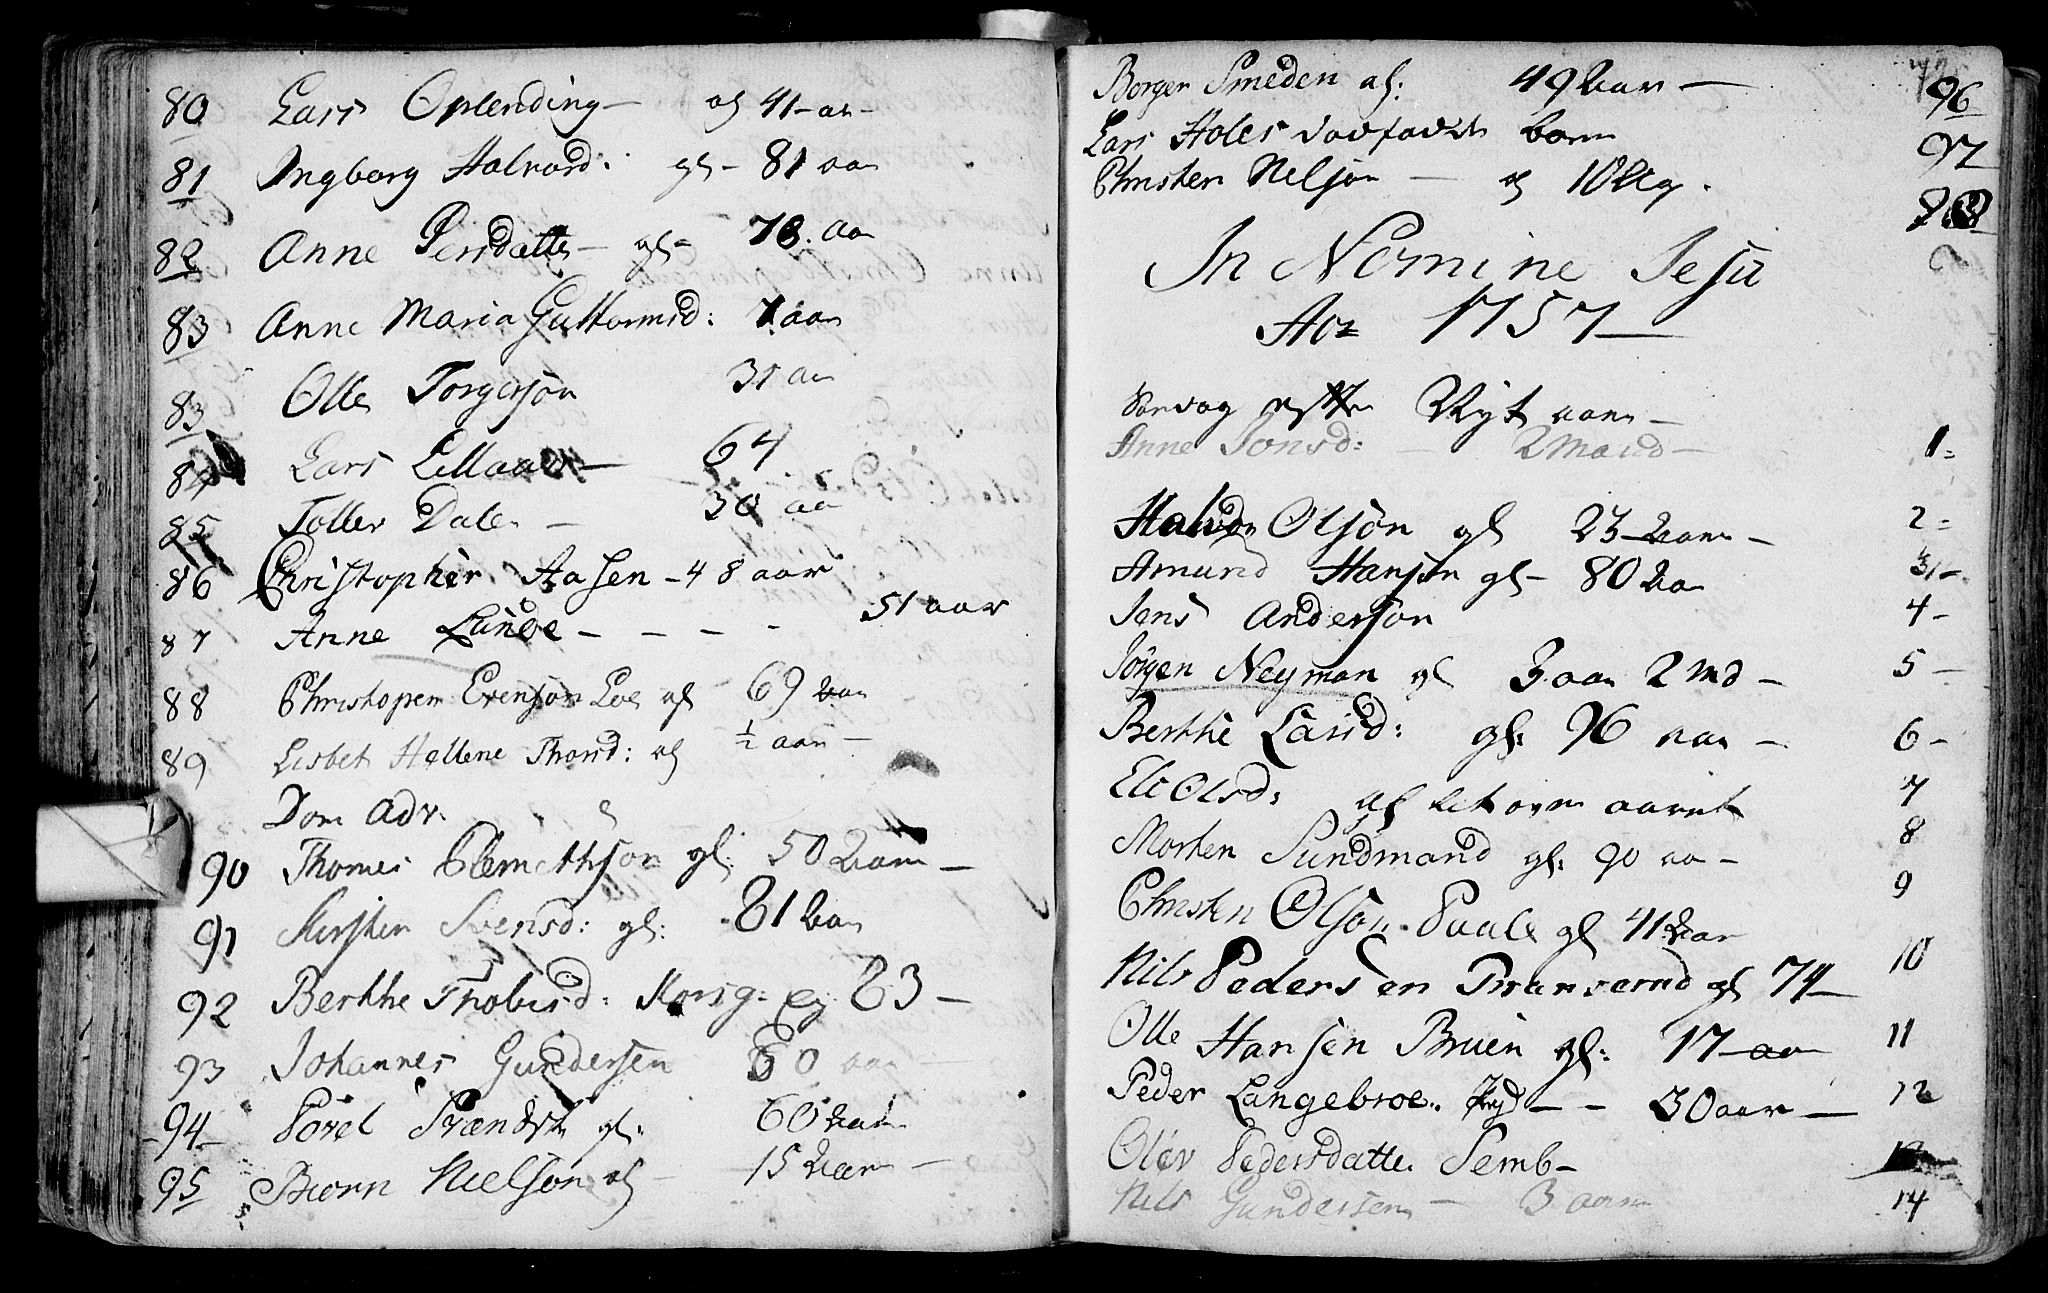 80 Lars Oplending – gl 41 – aar –
81 Ingborg Halvord: gl – 81 aar
82 Anne Persdatter – gl – 78. aar
83 Anne Maria Guttormsd: 1 aar
83 Olle Torgersøn 31 aar
84 Lars – 64
85 Toller Dalen – 30 aar
86 Christopher Aasen – 48 aar
87 Anne Lunde – – – – 51 aar
88 Christopher Evensøn Loe gl 69 aar
89 Lisbet Hellene Thord: gl ½ aar –
Dom Adv.
90 Thomes Clemethsøn gl: 50 aar –
91 Kirsten Svensd: gl: 81 aar
92 Berthe Thobisd: Korsg: gl 83 –
93 Johannes Gundersen 60 aar
94 Sørel gl: 60 aar
95 Biørn Nielsøn gl 15 aar –
Borger Smeden gl: 49 aar – 96
Lars Holes barn 97
Christen Nelsøn – gl 10
In Nomine Jesu
Ao 1757 –
Søndag efter Nyt aar –
Anne Jonsd: – 2 Maand – 1=
Halvor Olsøn gl 23 aar – 2=
Amund Hansøn gl – 80 aar 3 –
Jens Andersøn 4 –
Jørgen Neyman gl 3 aar 2 md – 5 –
Berthe Larsd: gl: 96 aar – 6 –
Eli Olsd: gl aaret 7
Morten Sundmand gl: 90 aar – 8
Christen Olsøn Paale gl 41 aar 9
Nils Pedersen gl 74 – 10
Olle Hansen Bruen gl: 17 – aar 11
Peder Langebroe – – 30 aar – 12
Oløv Pedersdatter Semb –
Nils Gundersen – 3 aar 14